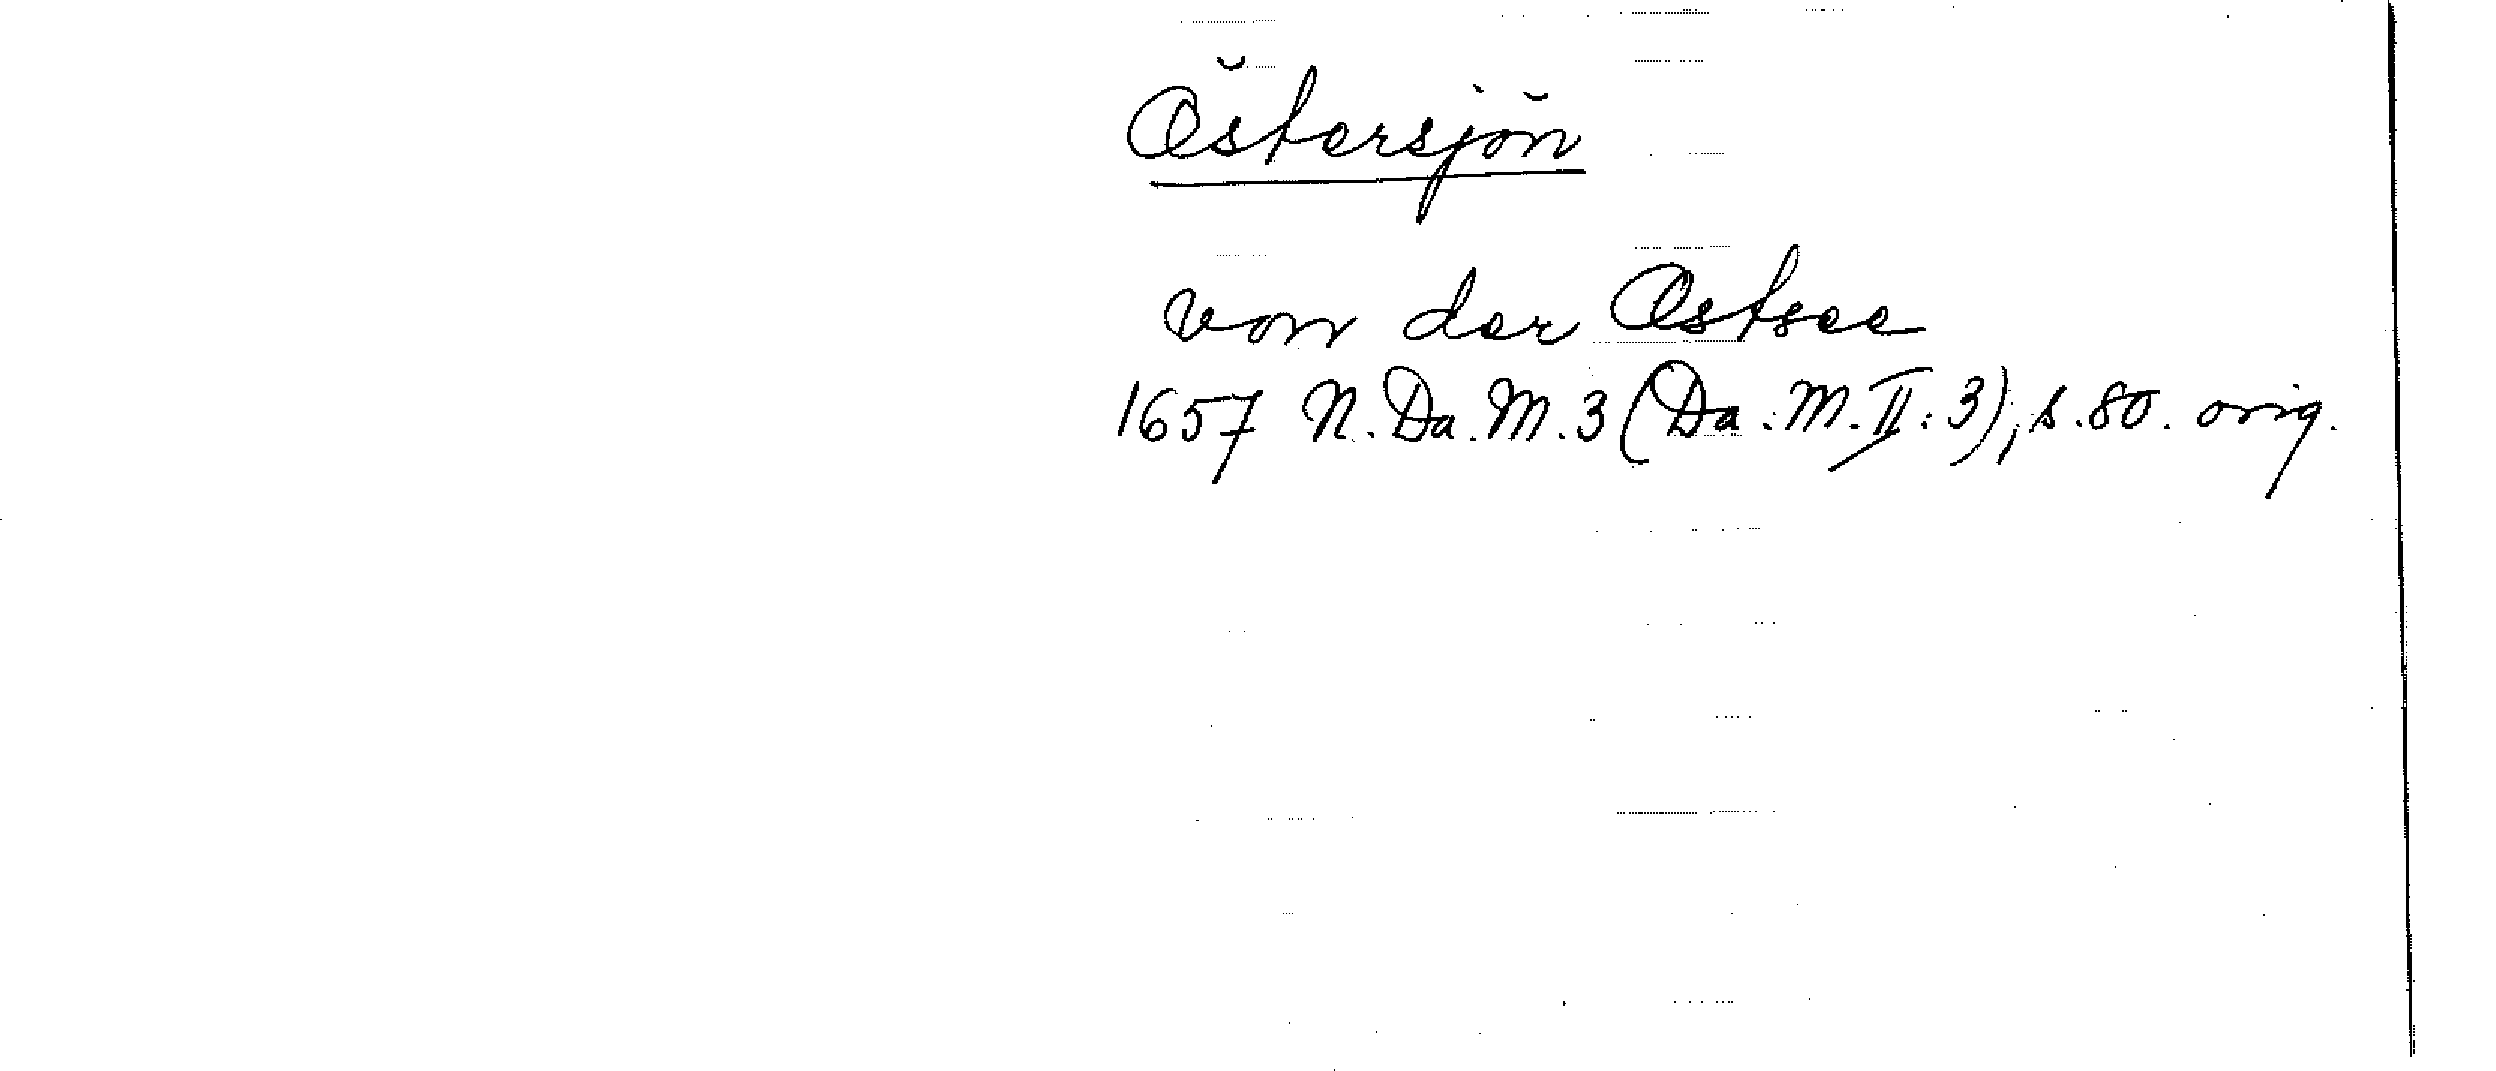 Östersjön
von der Ostsee
1657 N. Da. M. 3 (Da. M. II: 3), s. 80. orig.